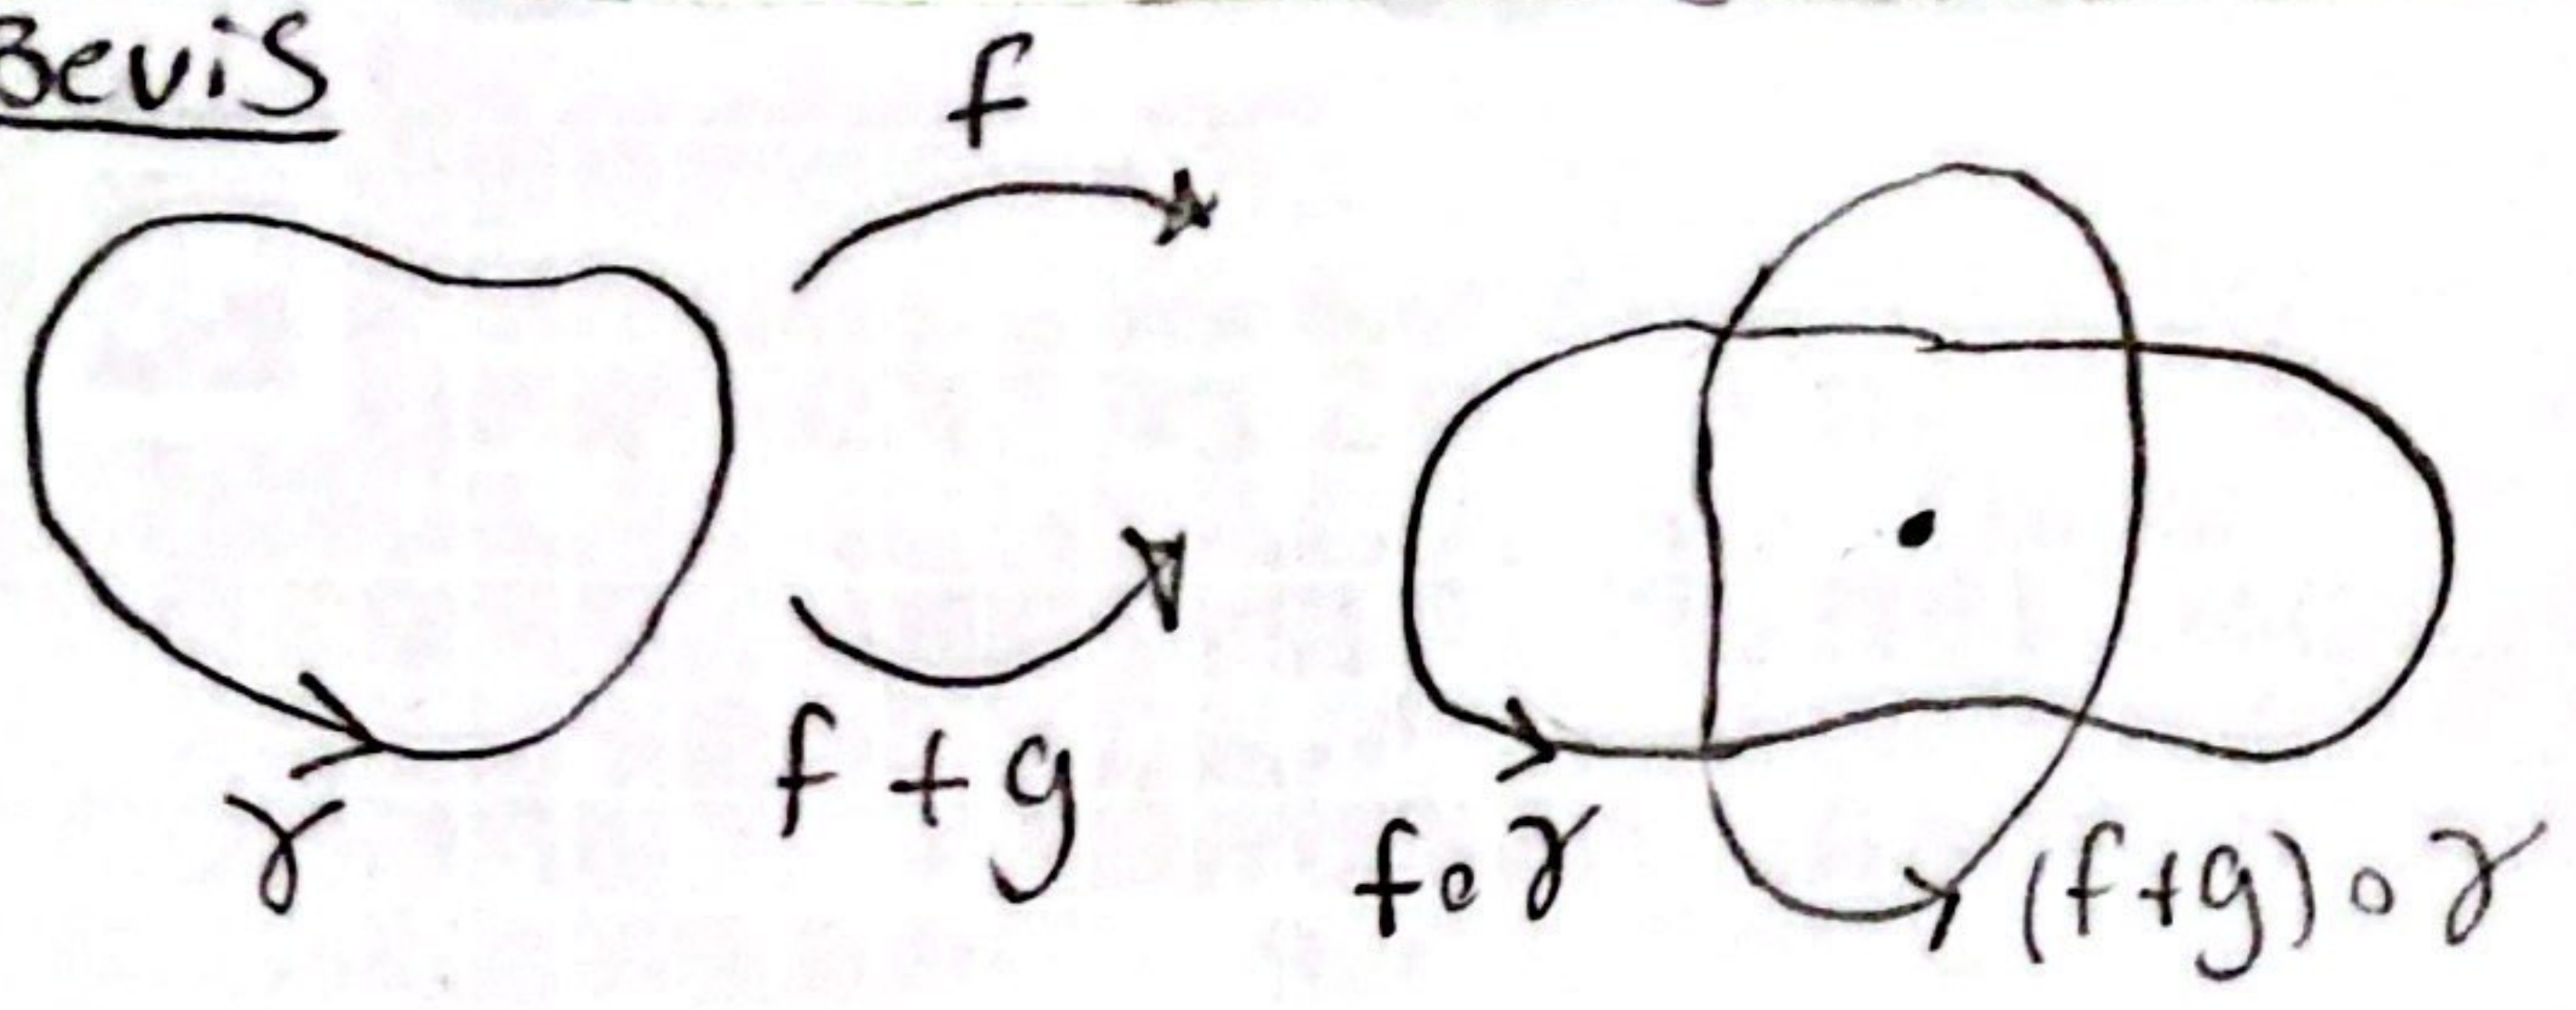 Bevis
f
f + g
γ
f∘γ
(f+g)∘γ